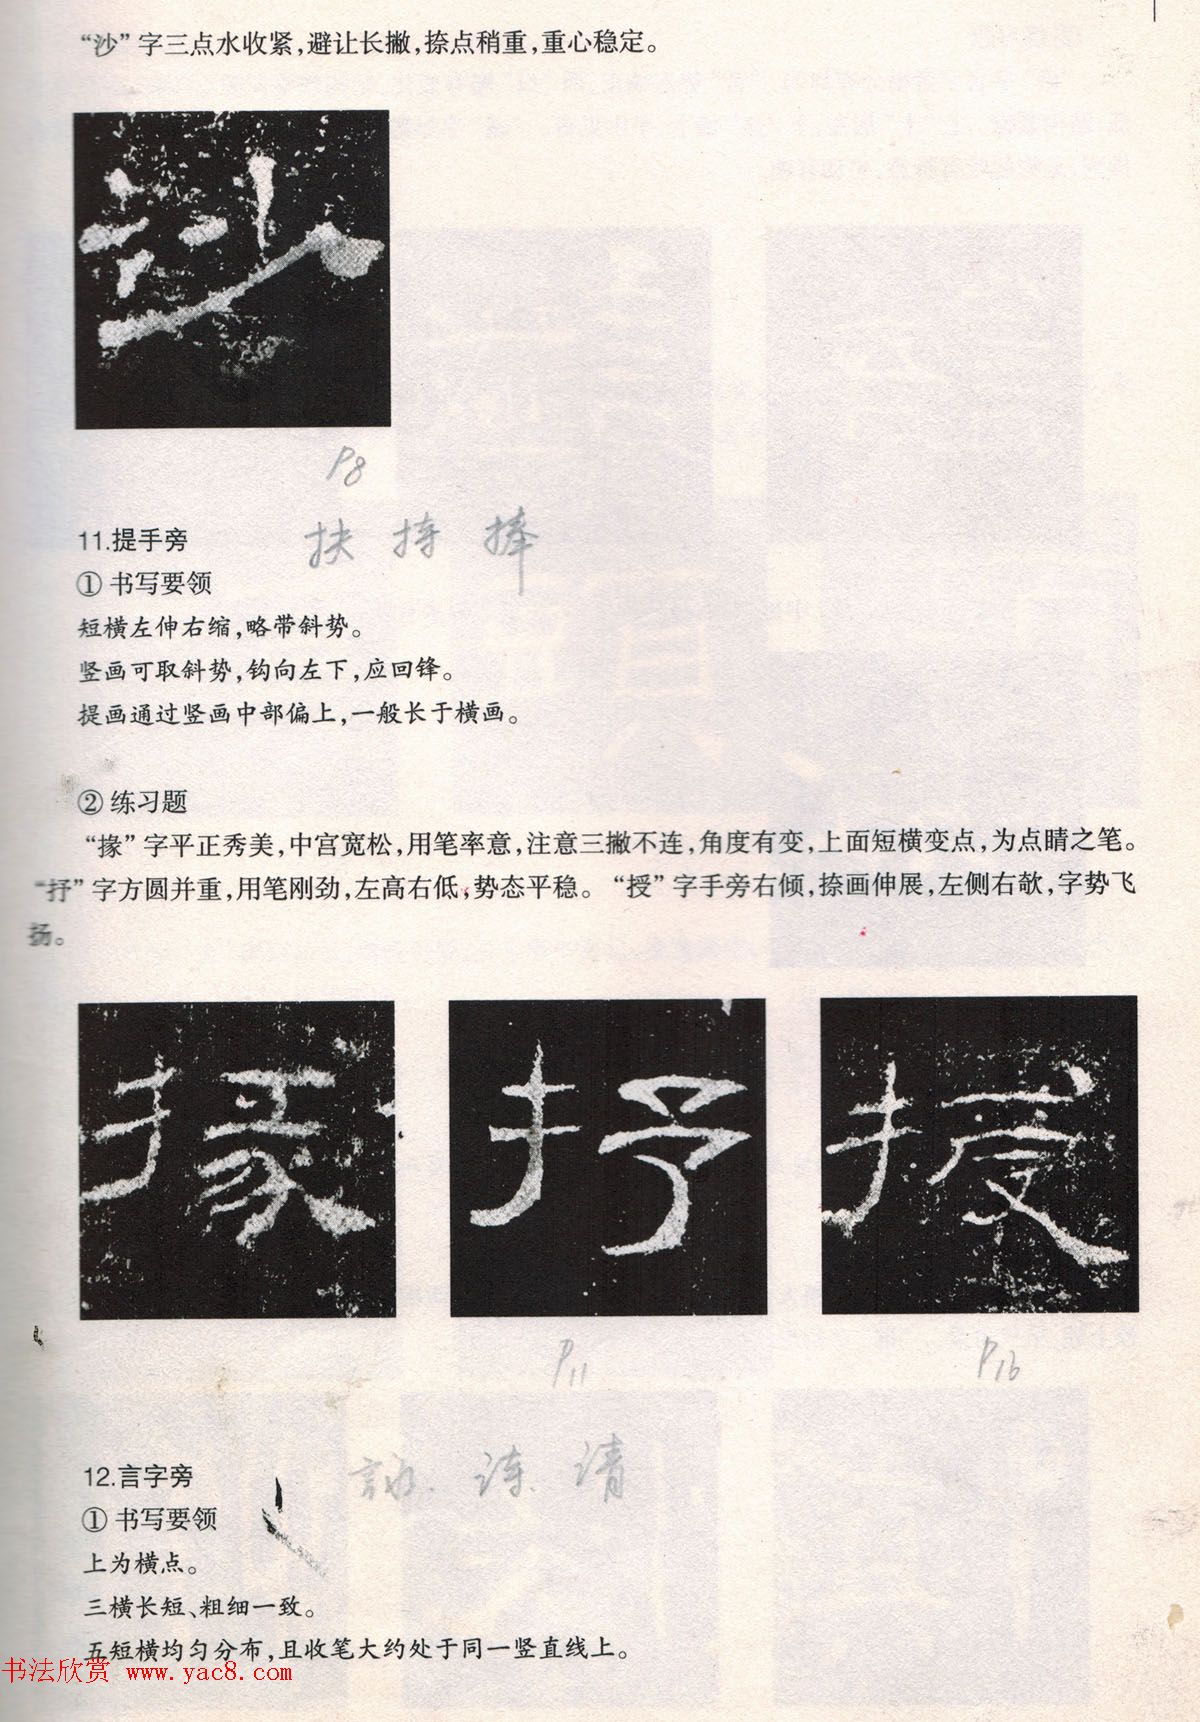 “沙”字三点水收紧,避让长撇,捺点稍重,重心稳定。
沙
P8
11.提手旁
扶 持 捧
① 书写要领
短横左伸右缩,略带斜势。
竖画可取斜势,钩向左下,应回锋。
提画通过竖画中部偏上,一般长于横画。
② 练习题
“掾”字平正秀美,中宫宽松,用笔率意,注意三撇不连,角度有变,上面短横变点,为点睛之笔。
“抒”字方圆并重,用笔刚劲,左高右低,势态平稳。“授”字手旁右倾,捺画伸展,左侧右欹,字势飞
扬。
掾 抒 授
P11 P16
12.言字旁
詠. 诗. 请
① 书写要领
上为横点。
三横长短、粗细一致。
五短横均匀分布,且收笔大约处于同一竖直线上。
书法欣赏 www.yac8.com